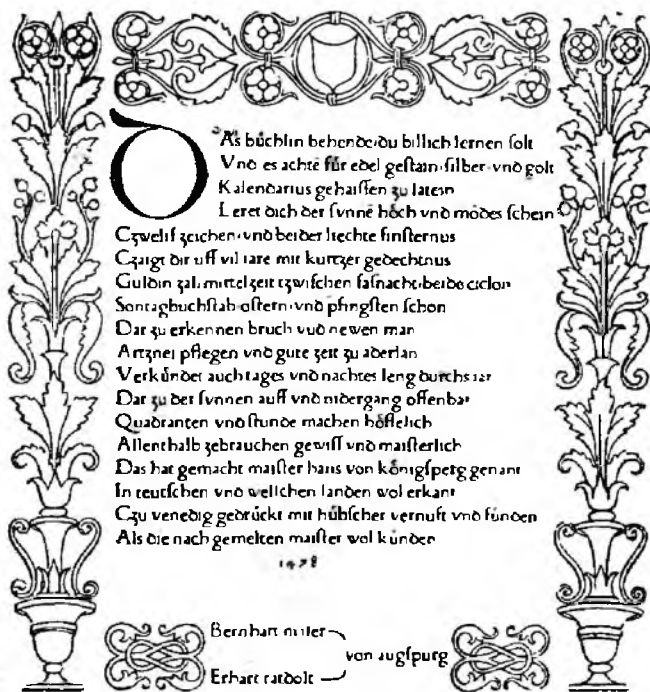 DAs büchlin behende·du billich lernen ſolt
Vnd es achte für edel geſtain·ſilber·vnd golt
Kalendarius gehaiſſen zu latein
Leret dich der ſvnne höch vnd modes ſchein
Czwelif zeichen·vnd beider liechte finſternus
Czaigt dir uff vil iare mit kurtzer gedechtnus
Guldin zal·mittelzeit tzwiſchen faſnacht·beide ciclon
Sontagbuchſtab·oſtern·vnd pfingſten ſchon
Dar zu erkennen bruch vud newen man
Artznei pflegen vnd gute zeit zu aderlan
Verkündet auch tages vnd nachtes leng durchs iar
Dar zu der ſvnnen auff vnd nidergang offenbar
Quadranten vnd ſtunde machen höfflelich
Allenthalb zebrauchen gewiſſ vnd maiſterlich
Das hat gemacht maiſter hans von königſperg genant
In teutſchen vnd wellchen landen wol erkant
Czu venedig gedrückt mit hübſcher vernuft vnd funden
Als die nach gemelten maiſter wol kunden
1478
Bernhart maler
von augſpurg
Erhart ratdolt